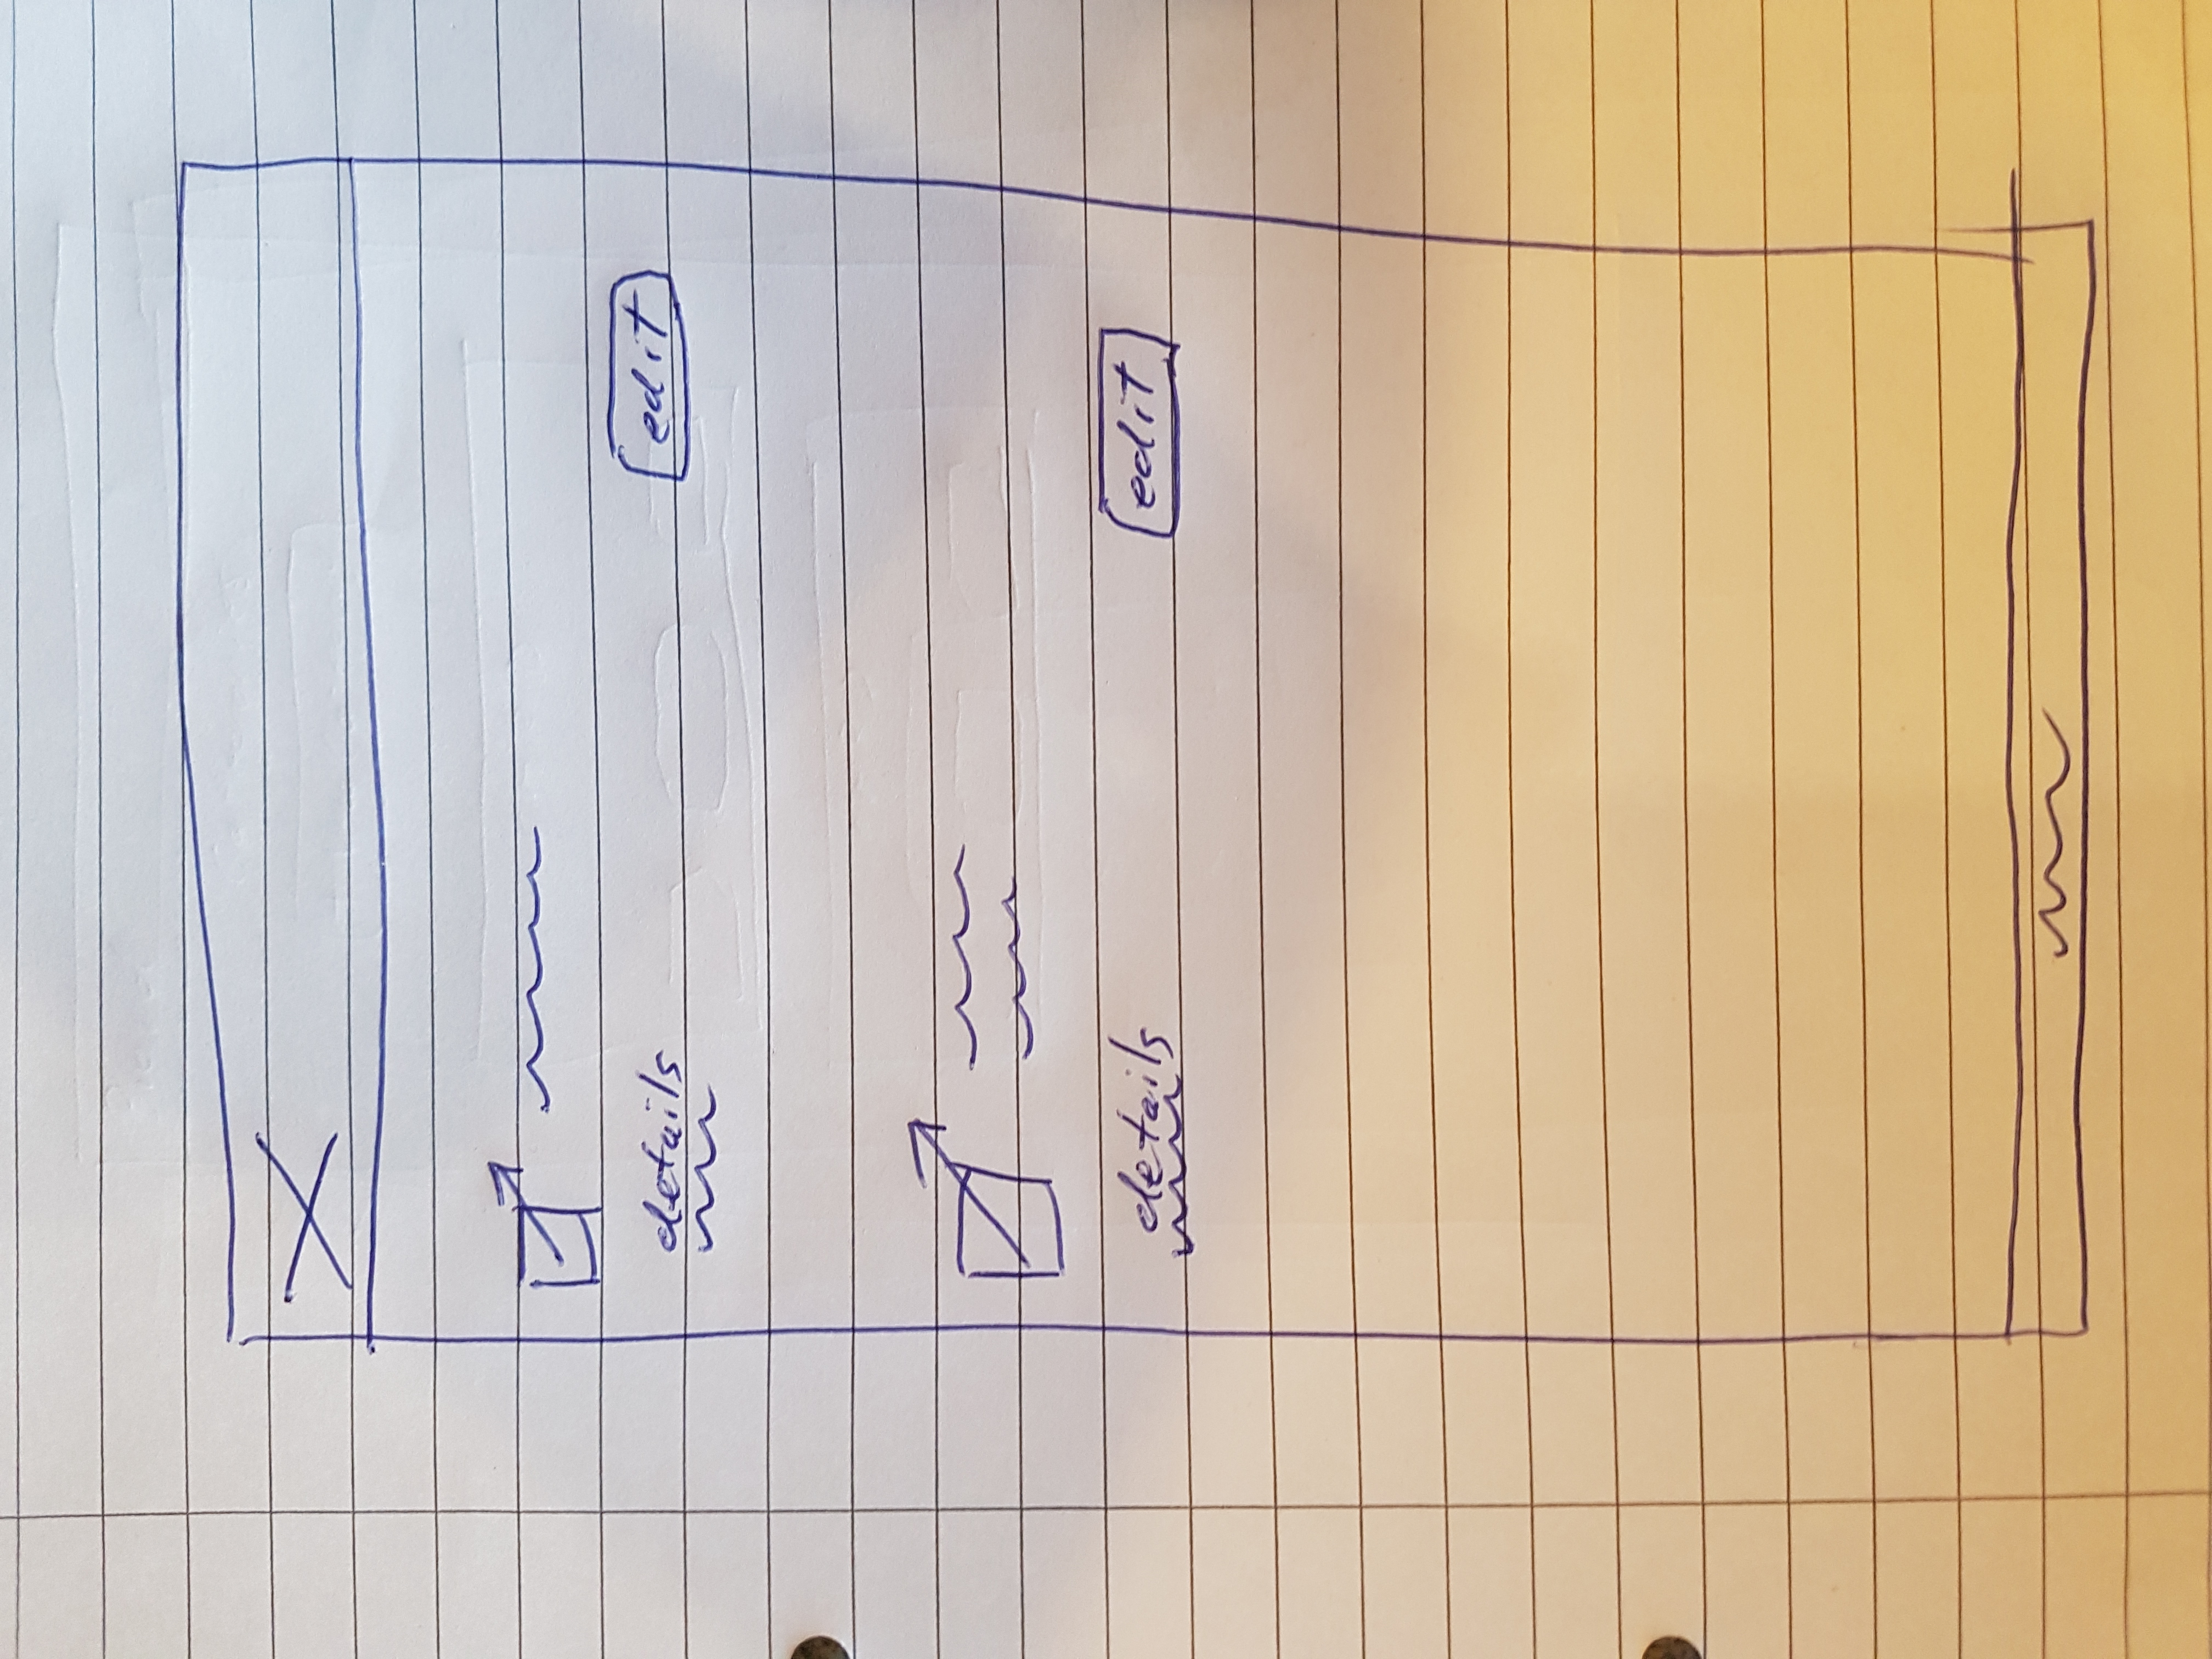 details
edit
details
edit